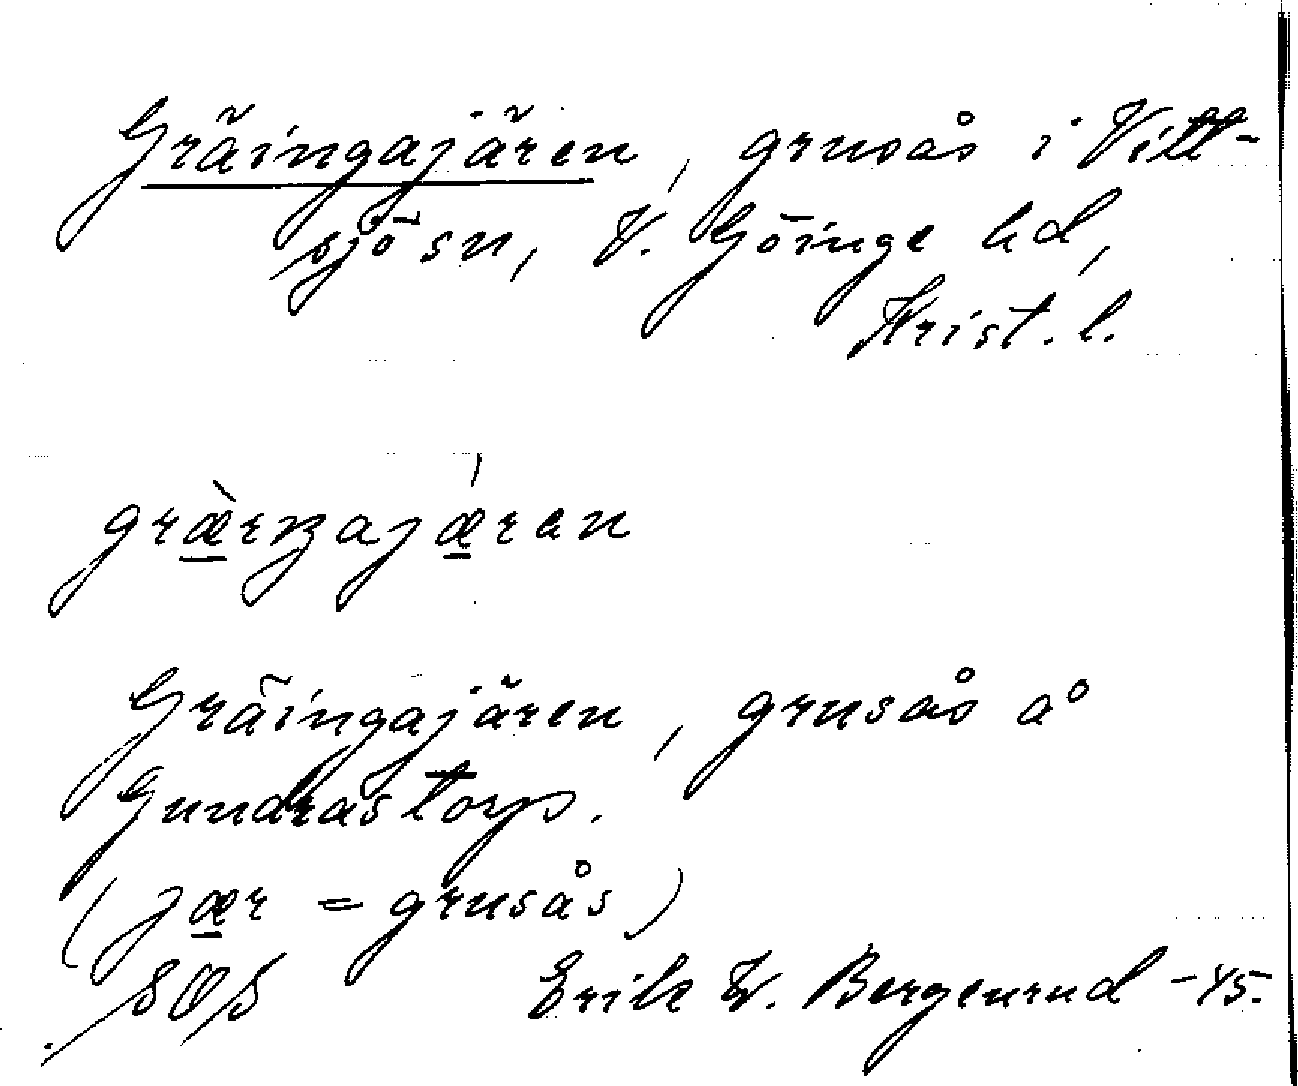 Gräingajären, grusås i Vitt-
sjö sn, V. Göinge hd,
Krist. l.
græ̀rŋajæ̀ren
Gräingajären, grusås å
Gundrastorp.
(jær = grusås)
SOS Erik W. Bergenrud -45.